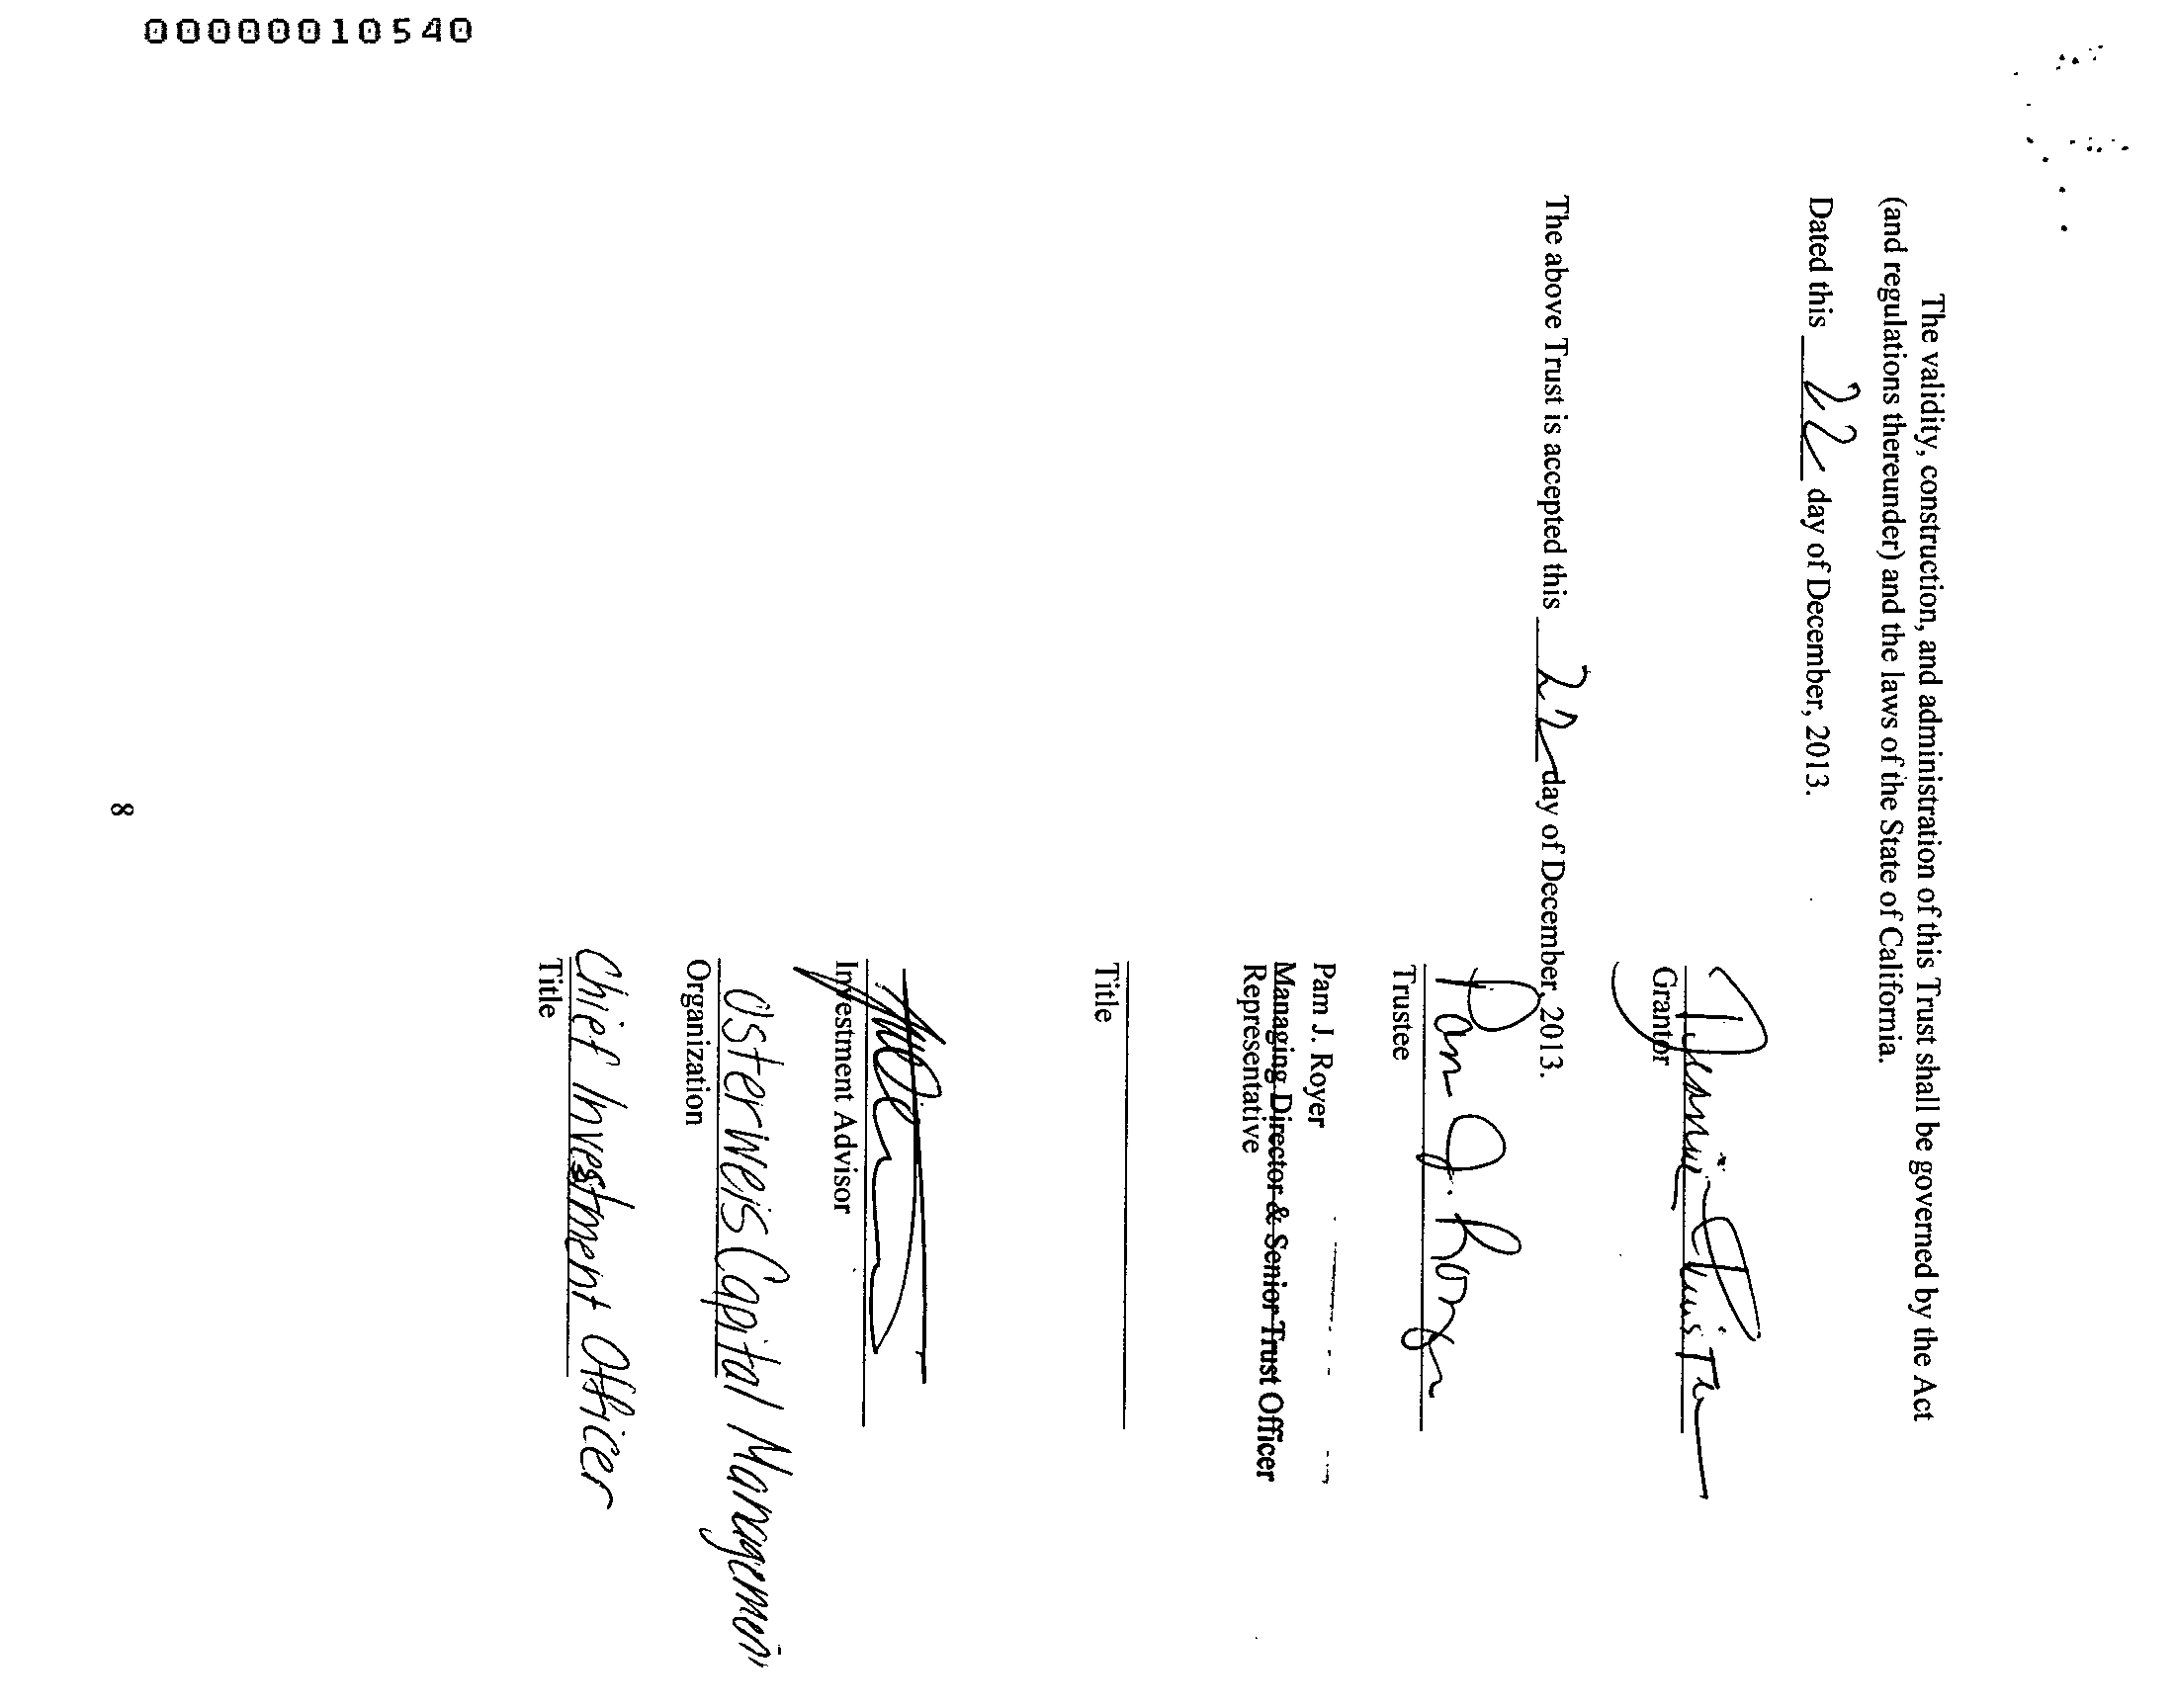 The validity, construction, and administration of this Trust shall be governed by the Act
(and regulations thereunder) and the laws of the State of California.
Dated this 22 day of December, 2013.
Grantor
The above Trust is accepted this 22 day of December, 2013.
Pam J. Royer
Trustee
Pam J. Royer
Managing Director & Senior Trust Officer
Representative
Title
Investment Advisor
Osterweis Capital Management
Organization
Chief Investment Officer
Title
8
00000010540